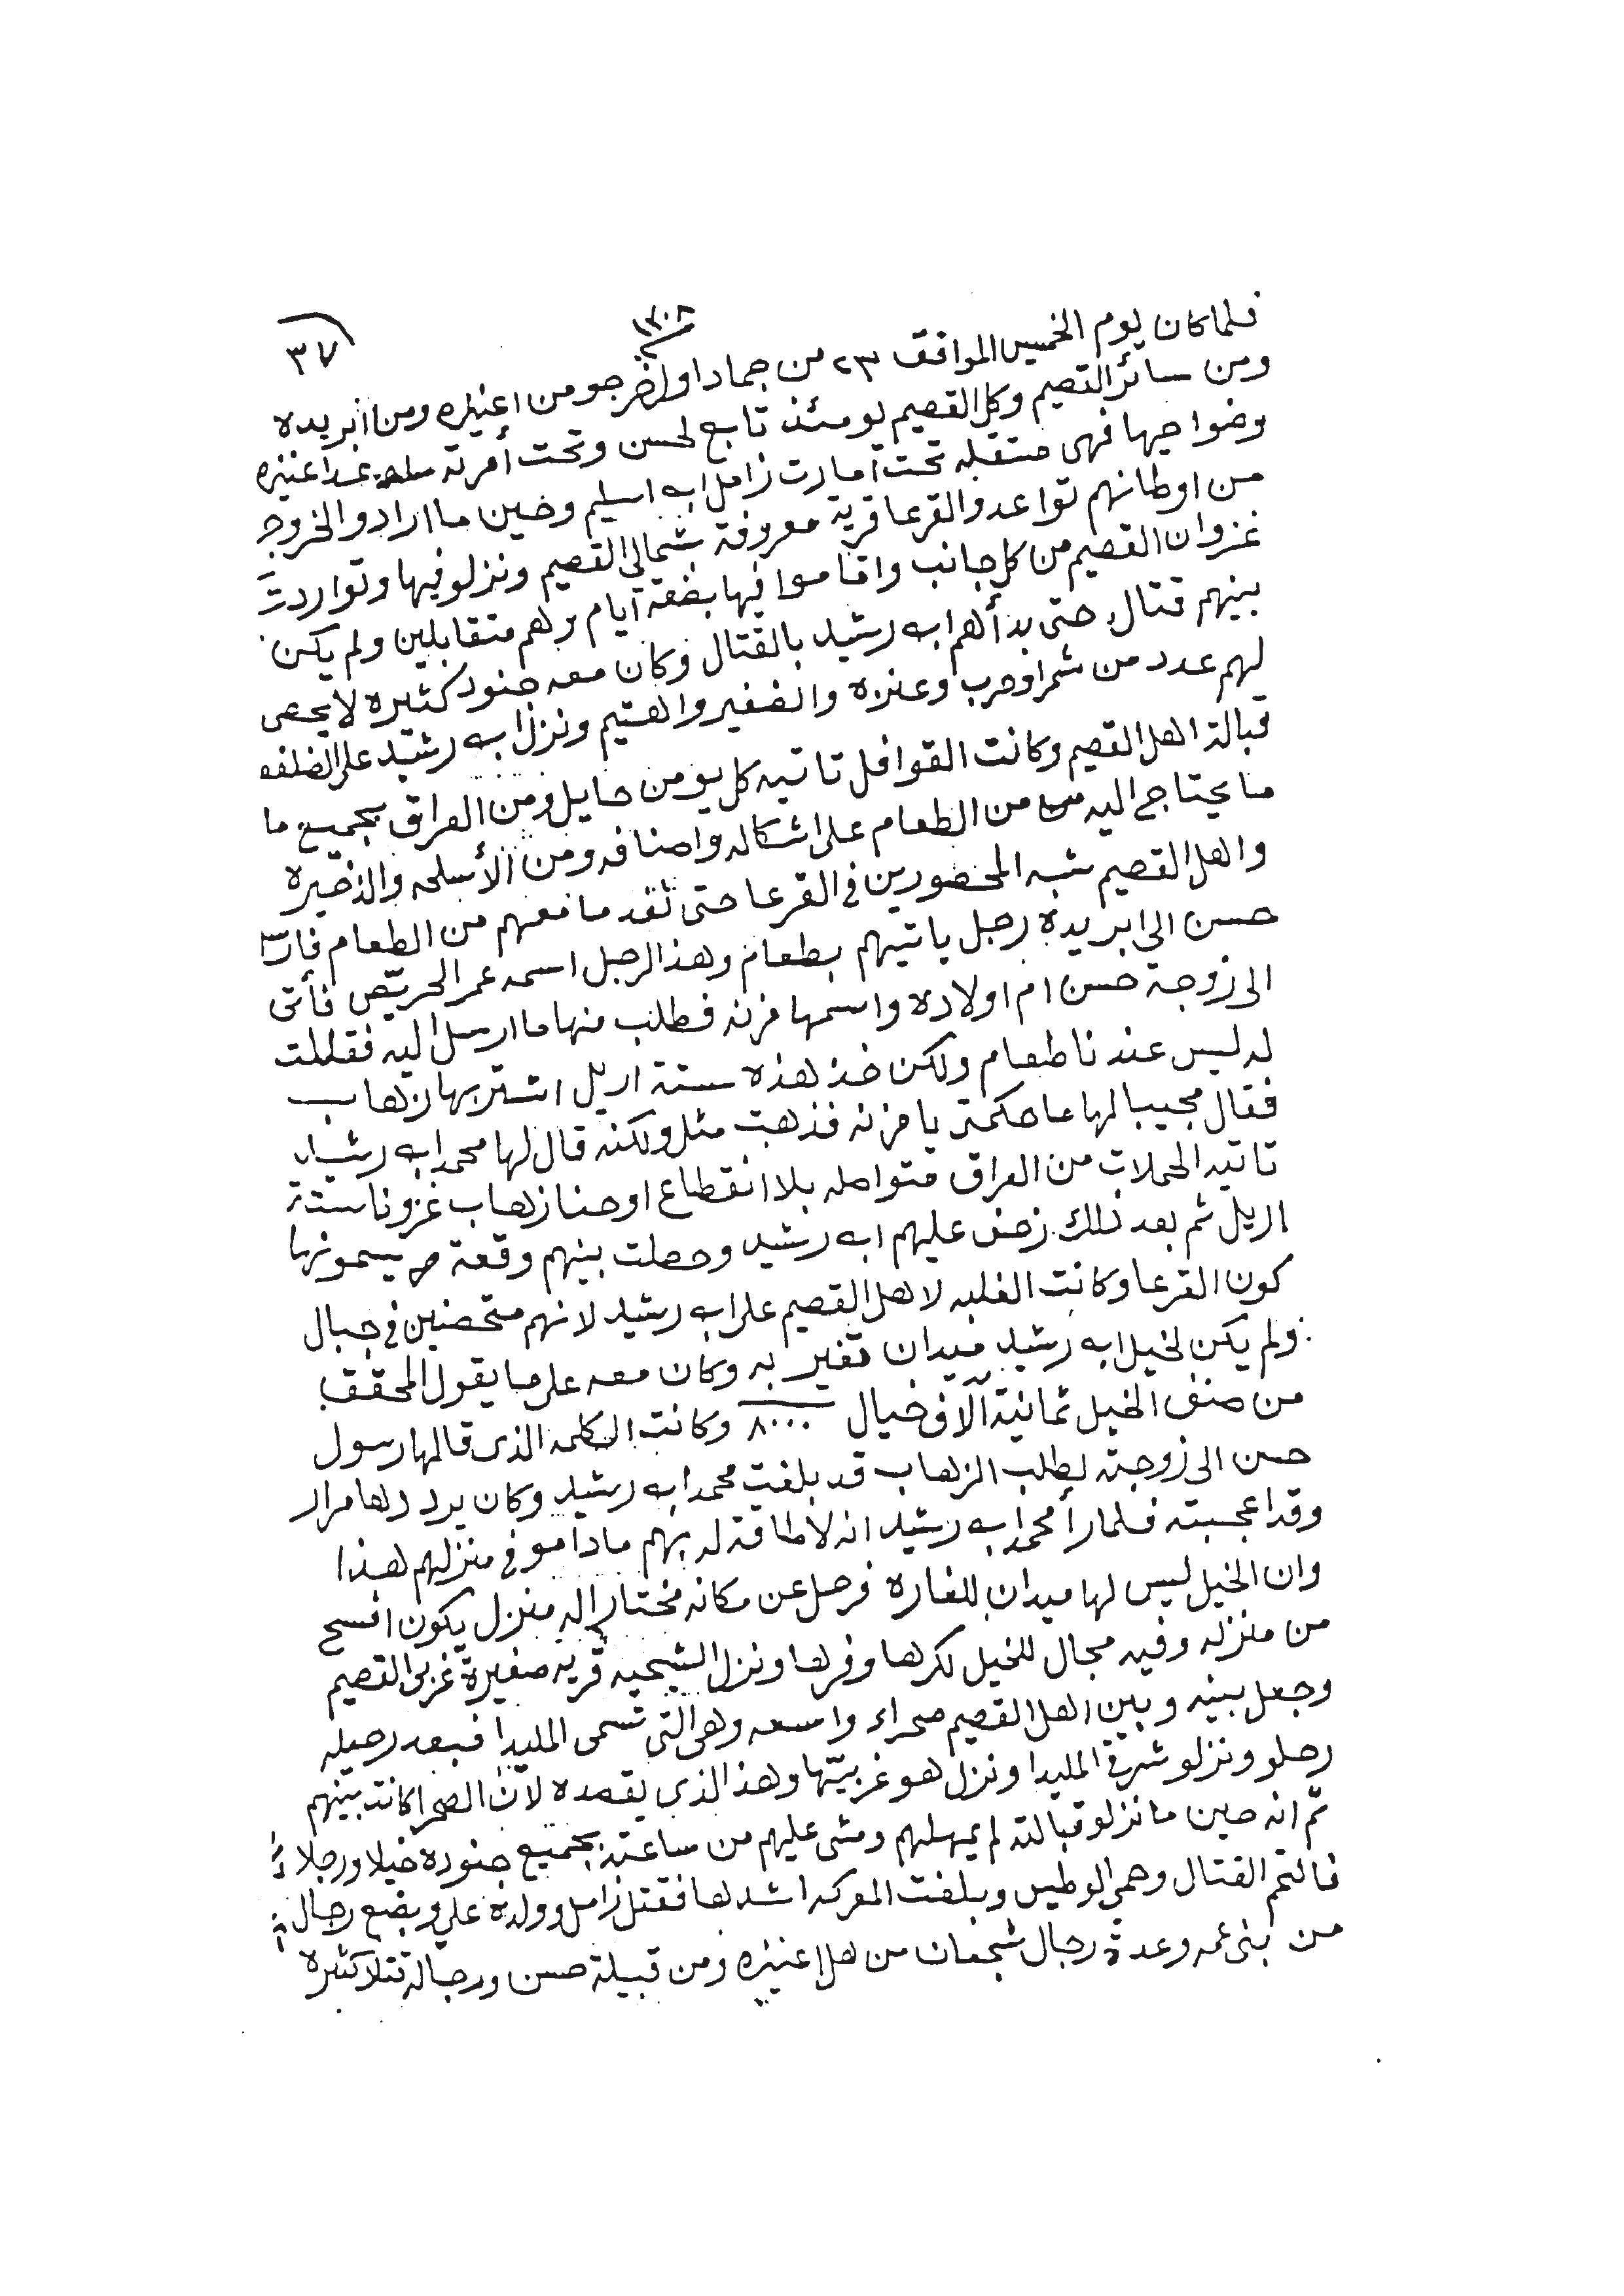 ٣٧
١٣٠٨
فلما كان يوم الخميس الموافق ٢٣ من جماد اول خرجو من اعنيزه ومن ابريده
ومن سائر القصيم وكل القصيم يومئذ تابع لحسن وتحت أمرته عدا عنيزه
وضواحيها فهى مستقله تحت أمارت زامل ابه اسليم وحين ما ارادو الخروج
من اوطانهم تواعدو القرعا قرية معروفة شمالى القصيم ونزلو فيها وتواردت
غزوان القصيم من كل جانب واقاموا فيها بضعة أيام وهم متقابلين ولم يكن
بينهم قتال حتى بدأهم ابه رشيد بالقتال وكان معه جنود كثيره لا يحصى
لهم عدد من شمر وحرب وعنزه والضفير والهتيم ونزل ابه رشيد على الضلفعه
قبالة اهل القصيم وكانت القوافل تاتيه كل يوم من حايل ومن العراق بجميع ما
ما يحتاج اليه من الطعام على اشكاله واصنافه ومن الأسلحه والذخيره
واهل القصيم شبه المحصورين فى القرعا حتى نفد ما معهم من الطعام فارسل
حسن الى ابريدة رجل ياتيهم بطعام وهذا الرجل اسمه عمر الحريّص فأتى
الى زوجة حسن ام اولاده واسمها مزنه فطلب منها ما ارسل اليه فقالت
له ليس عندنا طعام ولكن خذ هذه ستة اريل اشتر بها زهاب
فقال مجيبا لها عاصكمتى يا مزنه فذهبت مثل ولكنه قال لها محمد ابه رشيد
تاتيه الحملات من العراق متواصله بلا انقطاع اوحنا زهاب غزونا ستة
اريل ثم بعد ذلك زحف عليهم ابه رشيد وحصلت بينهم وقعة يسمونها
كون القرعا وكانت الغلبه لاهل القصيم على ابه رشيد لانهم متحصنين فى جبال
ولم يكن لخيل ابه رشيد ميدان تغير به وكان معه على ما يقول المحقق
من صنف الخيل ثمانية آلاف خيال ٨٠٠٠ وكانت الكلمه الذى قالها رسول
حسن الى زوجته بطلب الزهاب قد بلغت محمد ابه رشيد وكان يرددها مرار
وقد اعجبته فلما رأ محمد ابه رشيد انه لا طاقة له بهم ما دامو فى منزلهم هذا
وان الخيل ليس لها ميدان للغاره فرحل عن مكانه مختارا له منزل يكون افسح
من منزله وفيه مجال للخيل لكرها وفرها ونزل الشيحيه قريه صغيرة غربى القصيم
وجعل بينه وبين اهل القصيم صحراء واسعه وهى التى تسمى المليدا فبعد رحيله
رحلو ونزلو شرقى المليدا ونزل هو غربيّها وهذا الذى يقصده لأن الصحرا كانت بينهم
ثم انه حين ما نزلو قبالته لم يمهلهم ومشى عليهم من ساعته بجميع جنوده خيلا ورجلا
فالتحم القتال وحمى الوطيس وبلغت المعركه اشدها فقتل زامل وولده على وبضع رجال
من بنى عمه وعدة رجال شجعان من اهل اعنيزه ومن قبيلة حسن ورجاله قتلا كثيره